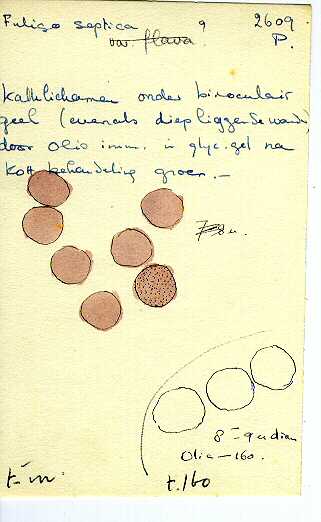 Fuligo septica ? 2609
var. flava. P.
Kalklichamen onder binoculair
geel (evenals diepliggende wand)
door Olie imm. in glyc. gel na
KOH behandeling groen.—
8μ.
8–9μ diam
Olie–160.
t.160